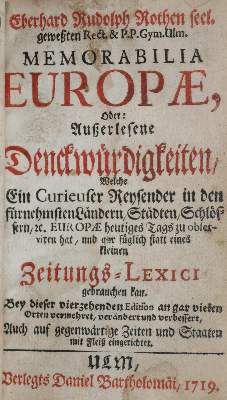 Eberhard Rudolph Rothen seel.
geweßten Rect. & P.P. Gym. Ulm.
MEMORABILIA
EUROPÆ,
Oder:
Außerlesene
Denckwürdigkeiten,
Welche
Ein Curieuser Reysender in den
fürnehmsten Ländern, Städten, Schlös-
sern, &c. EUROPÆ heutiges Tags zu obser-
viren hat, und gar füglich statt eines
kleinen
Zeitungs-LEXICI
gebrauchen kan.
Bey dieser vierzehenden Edition an gar vielen
Orten vermehret, verändert und verbessert,
Auch auf gegenwärtige Zeiten und Staaten
mit Fleiß eingerichtet.
ULM,
Verlegts Daniel Bartholomäi, 1719.